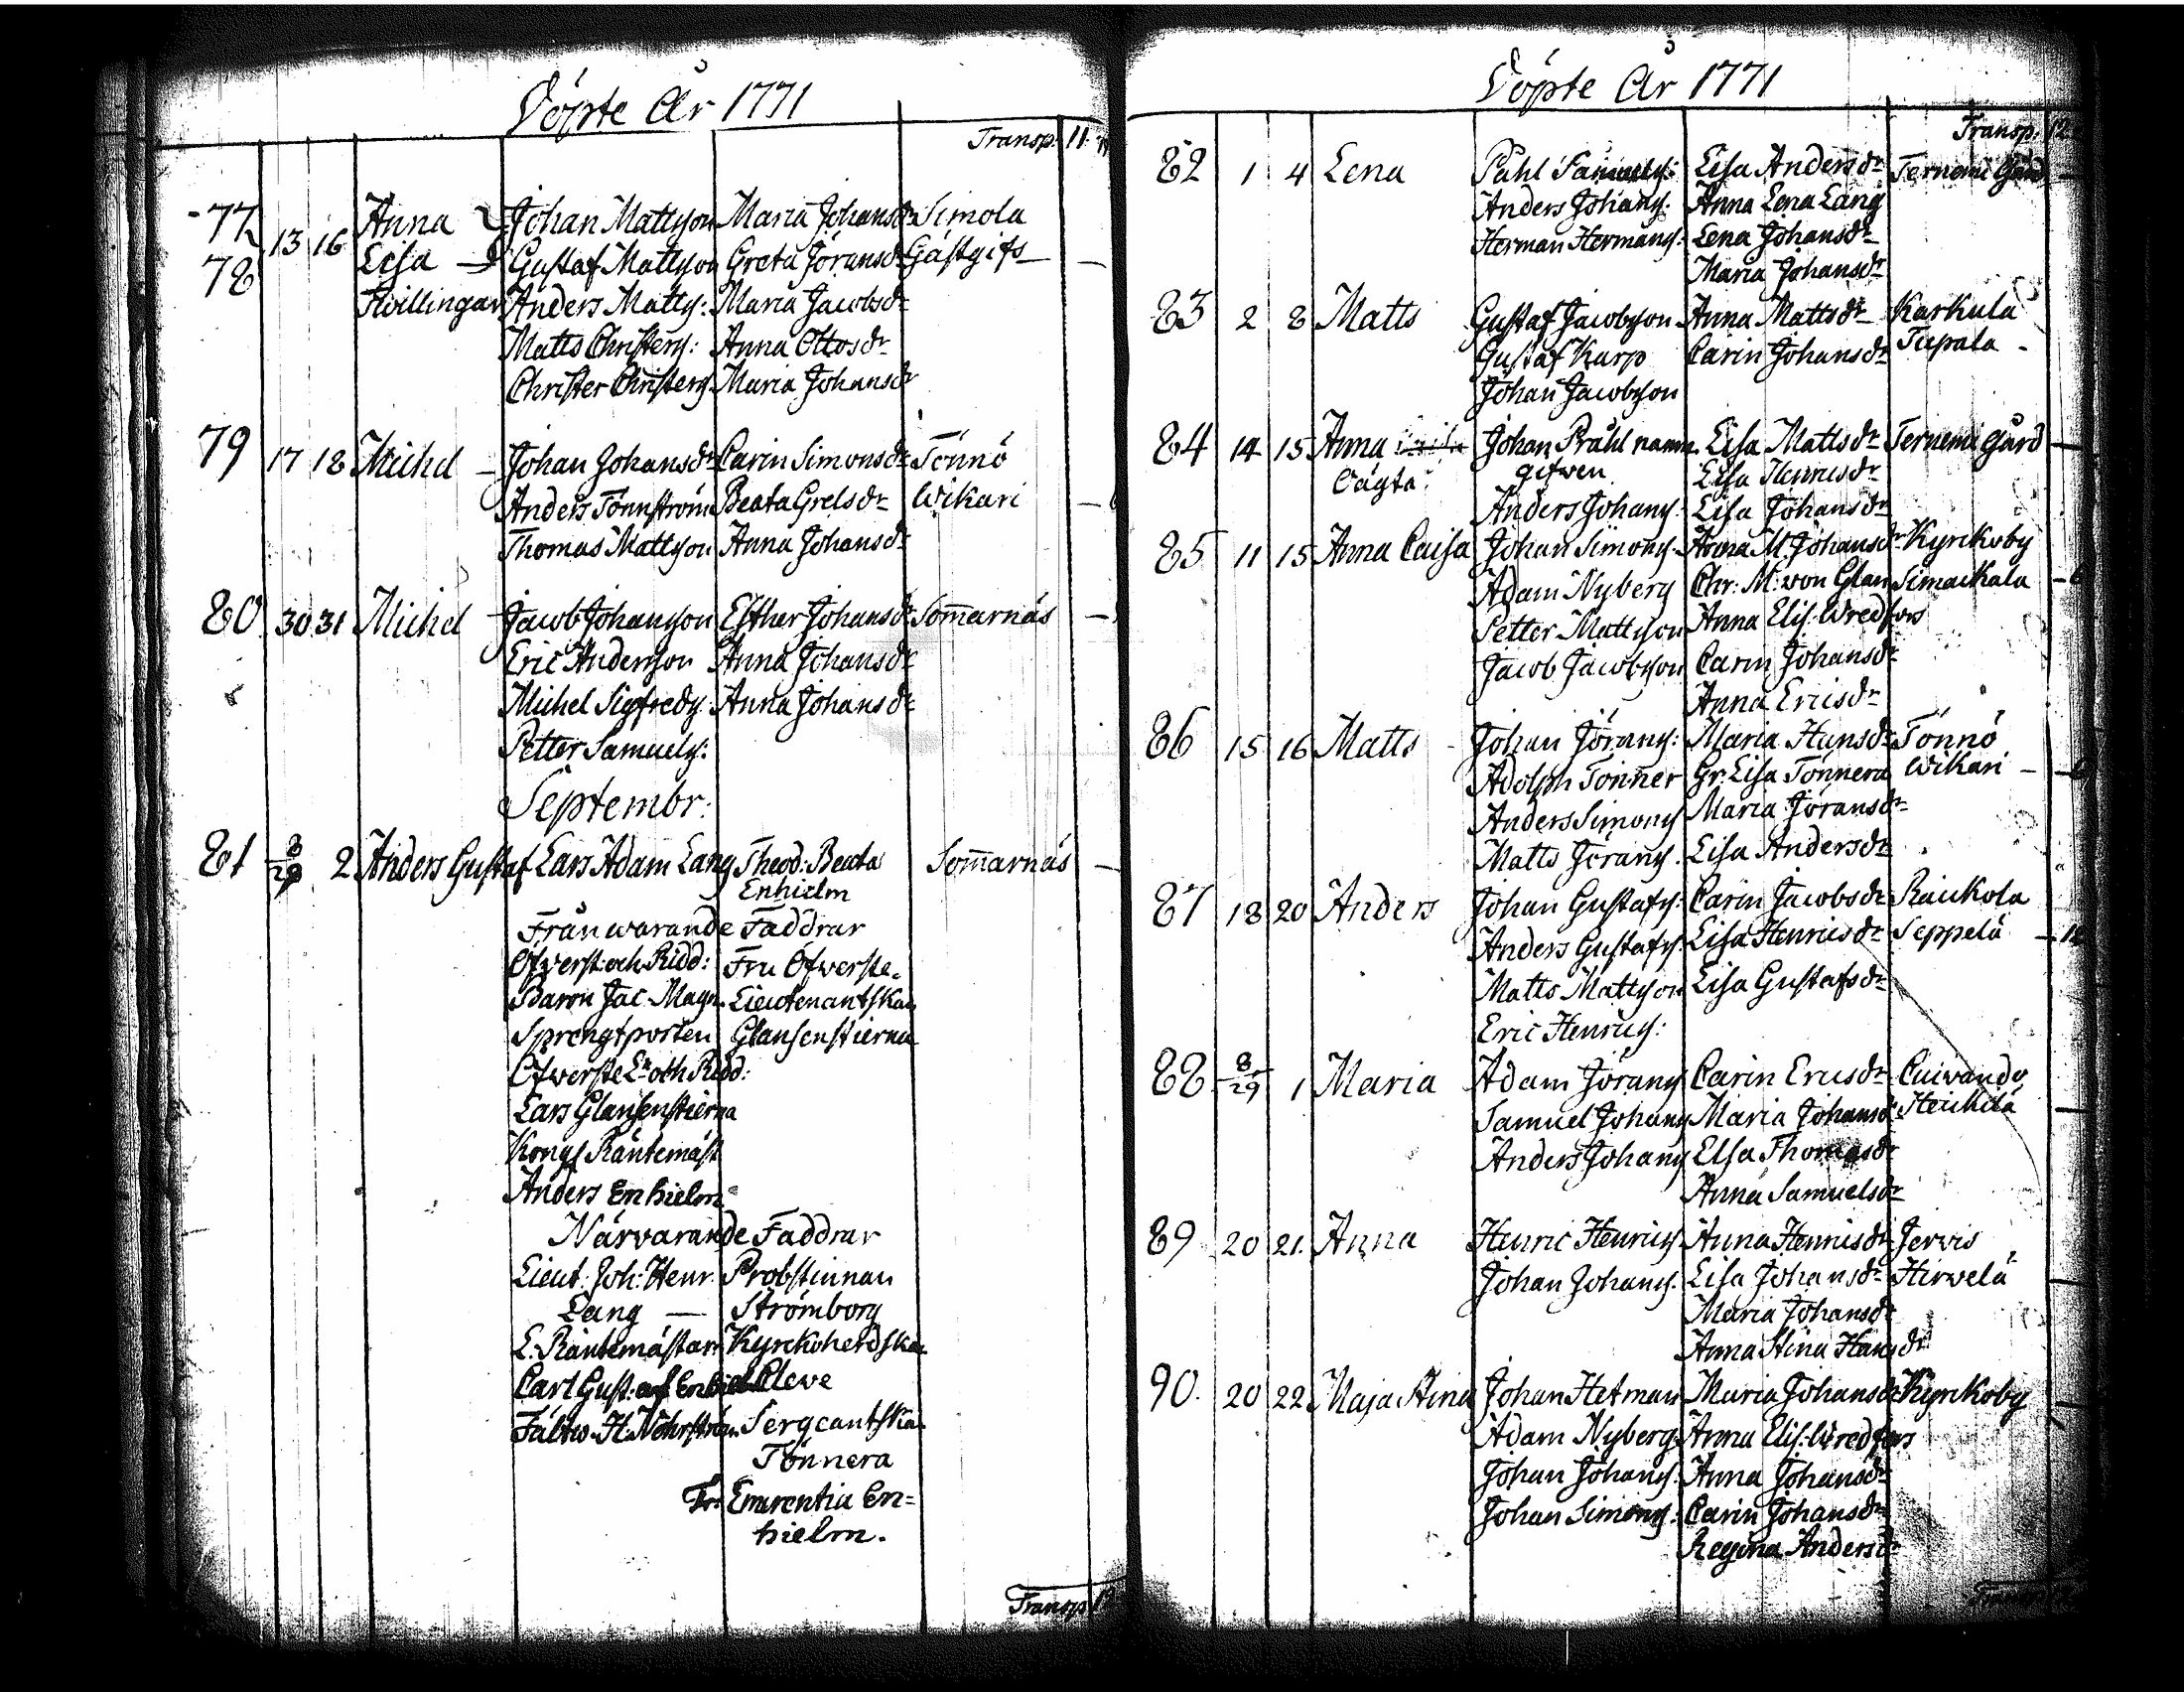 Döpte År 1771
Transp. 11
77 13 16 Anna Johan Mattsson Maria Johansdr Simola
78 Lisa Gustaf Mattsson Greta Jöransdr Gästgifs
Tvillingar Anders Matts: Maria Jacobsdr
Matts Christers: Anna Ottosdr
Christer Christers: Maria Johansdr
79 17 18 Michel Johan Johansdr Carin Simonsdr Tönnö
Anders Tönnström Beata Grelsdr Wikari
Thomas Mattsson Anna Johansdr
80 30 31 Michel Jacob Johansson Esther Johansdr Som̅arnäs
Eric Andersson Anna Johansdr
Michel Sigfreds: Anna Johansdr
Petter Samuels:
Septembr:
81 8/29 2 Anders Gustaf Lars Adam Lang Theod: Beata Som̅arnäs
Enhielm
Frånwarande Faddrar
Öfwerst: och Ridd: Fru Öfwerste-
Baron Jac. Magn. Lieutenantskan
Sprengtporten Glansenstierna
Öfwerste Lt och Ridd:
Lars Glansenstierna
Kongs Räntemäst
Anders Enhielm
Närvarande Faddrar
Lieut. Joh: Henr. Probstinnan
Lang — Strömborg
L: Räntemästarn Kyrkoherdskan
Carl Gust: af Enhielm Cleve
Fältw. H. Nohrström Sergeantska
Tönnera
Fr: Emerentia En=
hielm.
Transp
Döpte År 1771
Transp. 12
82 1 4 Lena Påhl Samuels: Lisa Andersdr Ternemi Gård
Anders Johans: Anna Lena Lang
Herman Hermans: Lena Johansdr
Maria Johansdr
83 2 8 Matts Gustaf Jacobsson Anna Mattsdr Karkula
Gustaf Karp Carin Johansdr Tupala
Johan Jacobsson
84 14 15 Anna Johan Pråhl namn Lisa Mattsdr Ternemi gård
Oägta: gifven Lisa Henricsdr
Anders Johans: Lisa Johansdr
85 11 15 Anna Caisa Johan Simons: Anna M. Johansdr Kyrkoby
Adam Nyberg Chr: M: von Glan Simaikala
Petter Mattsson Anna Elis. Wredfors
Jacob Jacobsson Carin Johansdr
Anna Ericsdr
86 15 16 Matts Johan Jörans: Maria Hansdr Tönnö
Adolph Tönner Gr: Lisa Tönnera Wikari
Anders Simons Maria Jöransdr
Matts Jörans: Lisa Andersdr
87 18 20 Anders Johan Gustafs: Carin Jacobsdr Raickola
Anders Gustafs: Lisa Henricsdr Seppelä
Matts Mattsson Lisa Gustafsdr
Eric Henrics:
88 8/29 1 Maria Adam Jörans Carin Ericsdr Cuivando
Samuel Johans Maria Johansdr Heickilä
Anders Johans Elsa Thomasdr
Anna Samuelsdr
89 20 21 Anna Henric Henrics: Anna Henricsdr Jervis
Johan Johans: Lisa Johansdr Hirvelä
Maria Johansdr
Anna Stina Hansdr
90. 20 22 Maja Stina Johan Hetman Maria Johansdr Kyrkoby
Adam Nyberg Anna Elis: Wredfors
Johan Johans: Anna Johansdr
Johan Simons: Carin Johansdr
Regina Andersdr